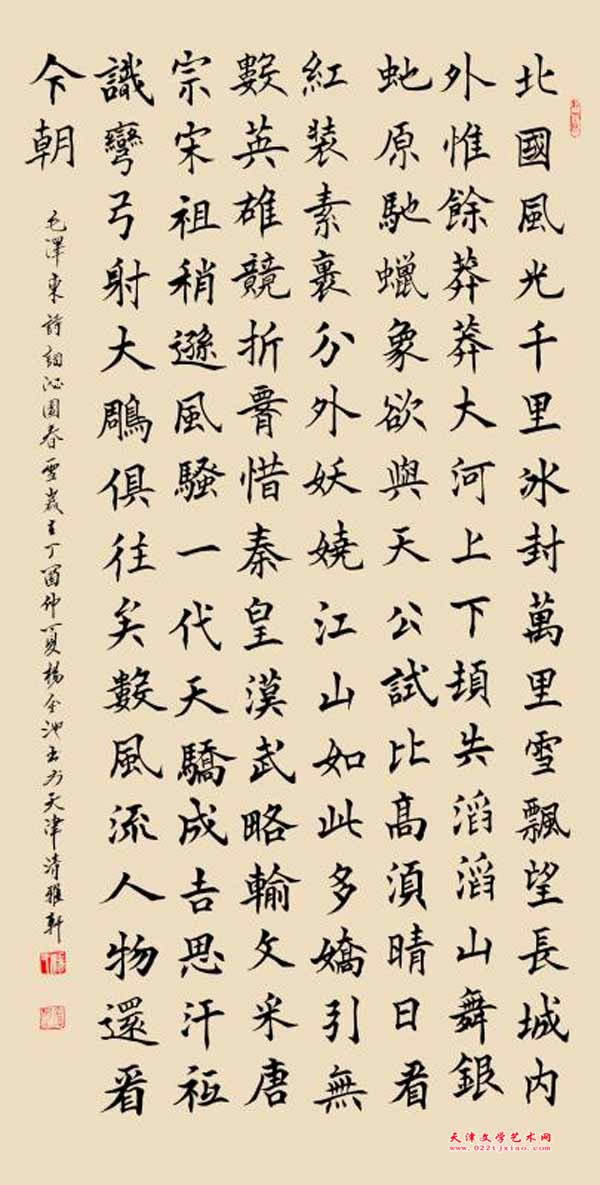 北國風光千里冰封萬里雪飄望長城内
外惟餘莽莽大河上下頓失滔滔山舞銀
虵原馳蠟象欲與天公試比高須晴日看
紅装素裹分外妖嬈江山如此多嬌引無
數英雄競折惜秦皇漢武略輸文采唐
宗宋祖稍遜風騷一代天驕成吉思汗衹
識彎弓射大鵰俱往矣數風流人物還看
今朝
毛澤東詩詞沁園春雪歲在丁酉仲夏楊金池書於天津清雅軒
天津文学艺术网
www.022tjxiao.com